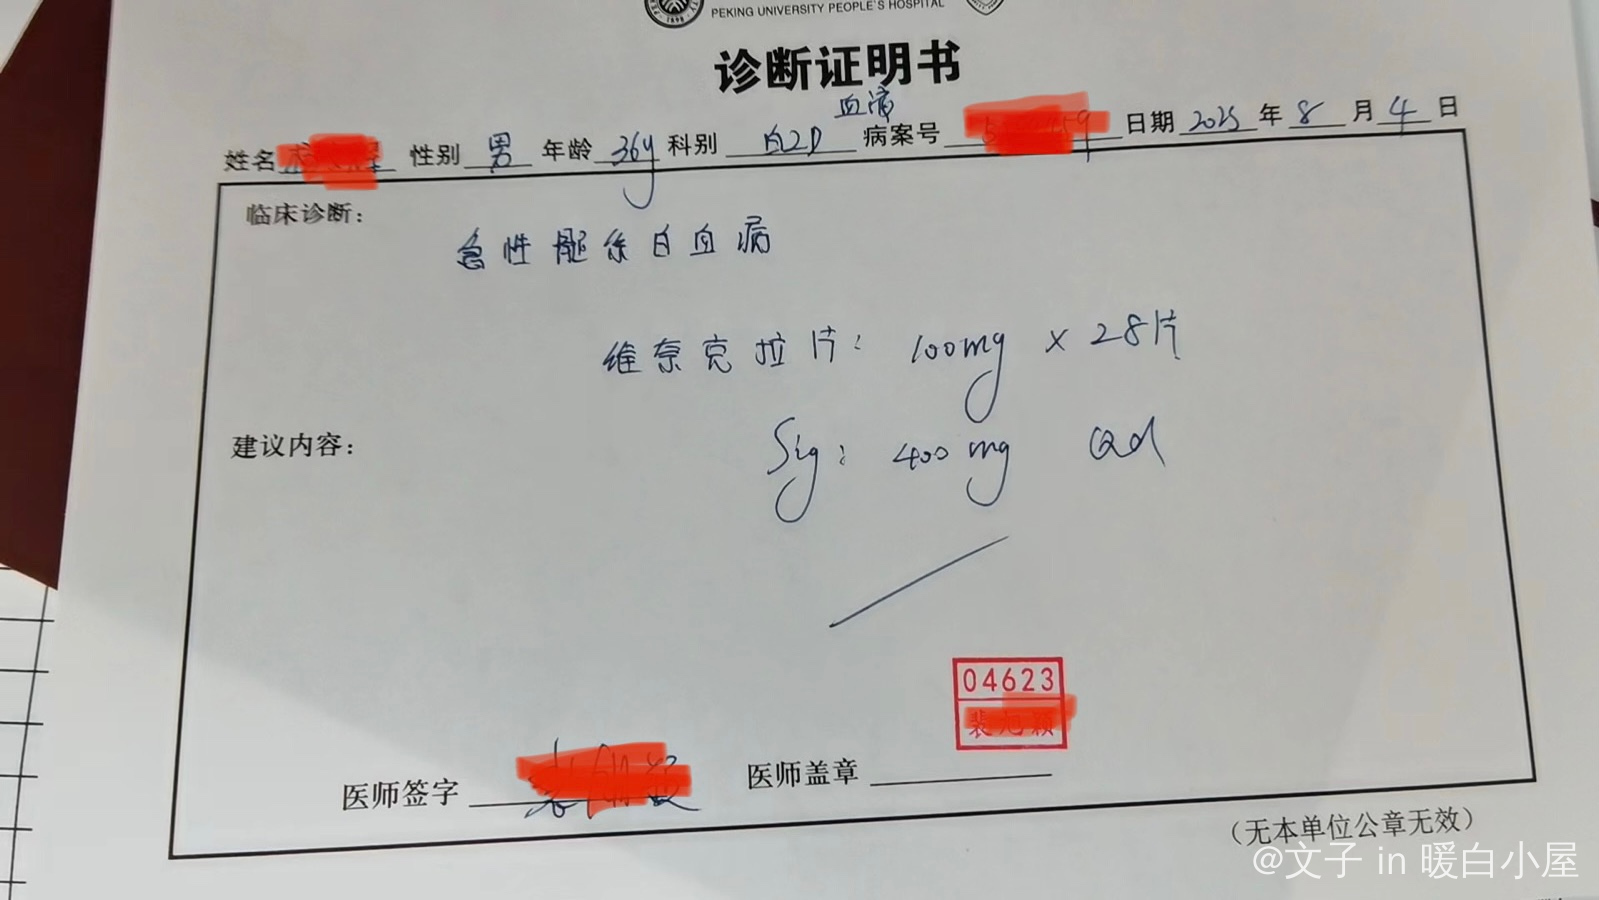 PEKING UNIVERSITY PEOPLE'S HOSPITAL
诊断证明书
血液
姓名 性别 男 年龄 36y 科别 白2D 病案号 日期 2025 年 8 月 4 日
临床诊断：
急性髓系白血病
维奈克拉片： 100mg × 28片
建议内容：
Sig： 400mg Qd
04623
医师签字 医师盖章
（无本单位公章无效）
@文子 in 暖白小屋